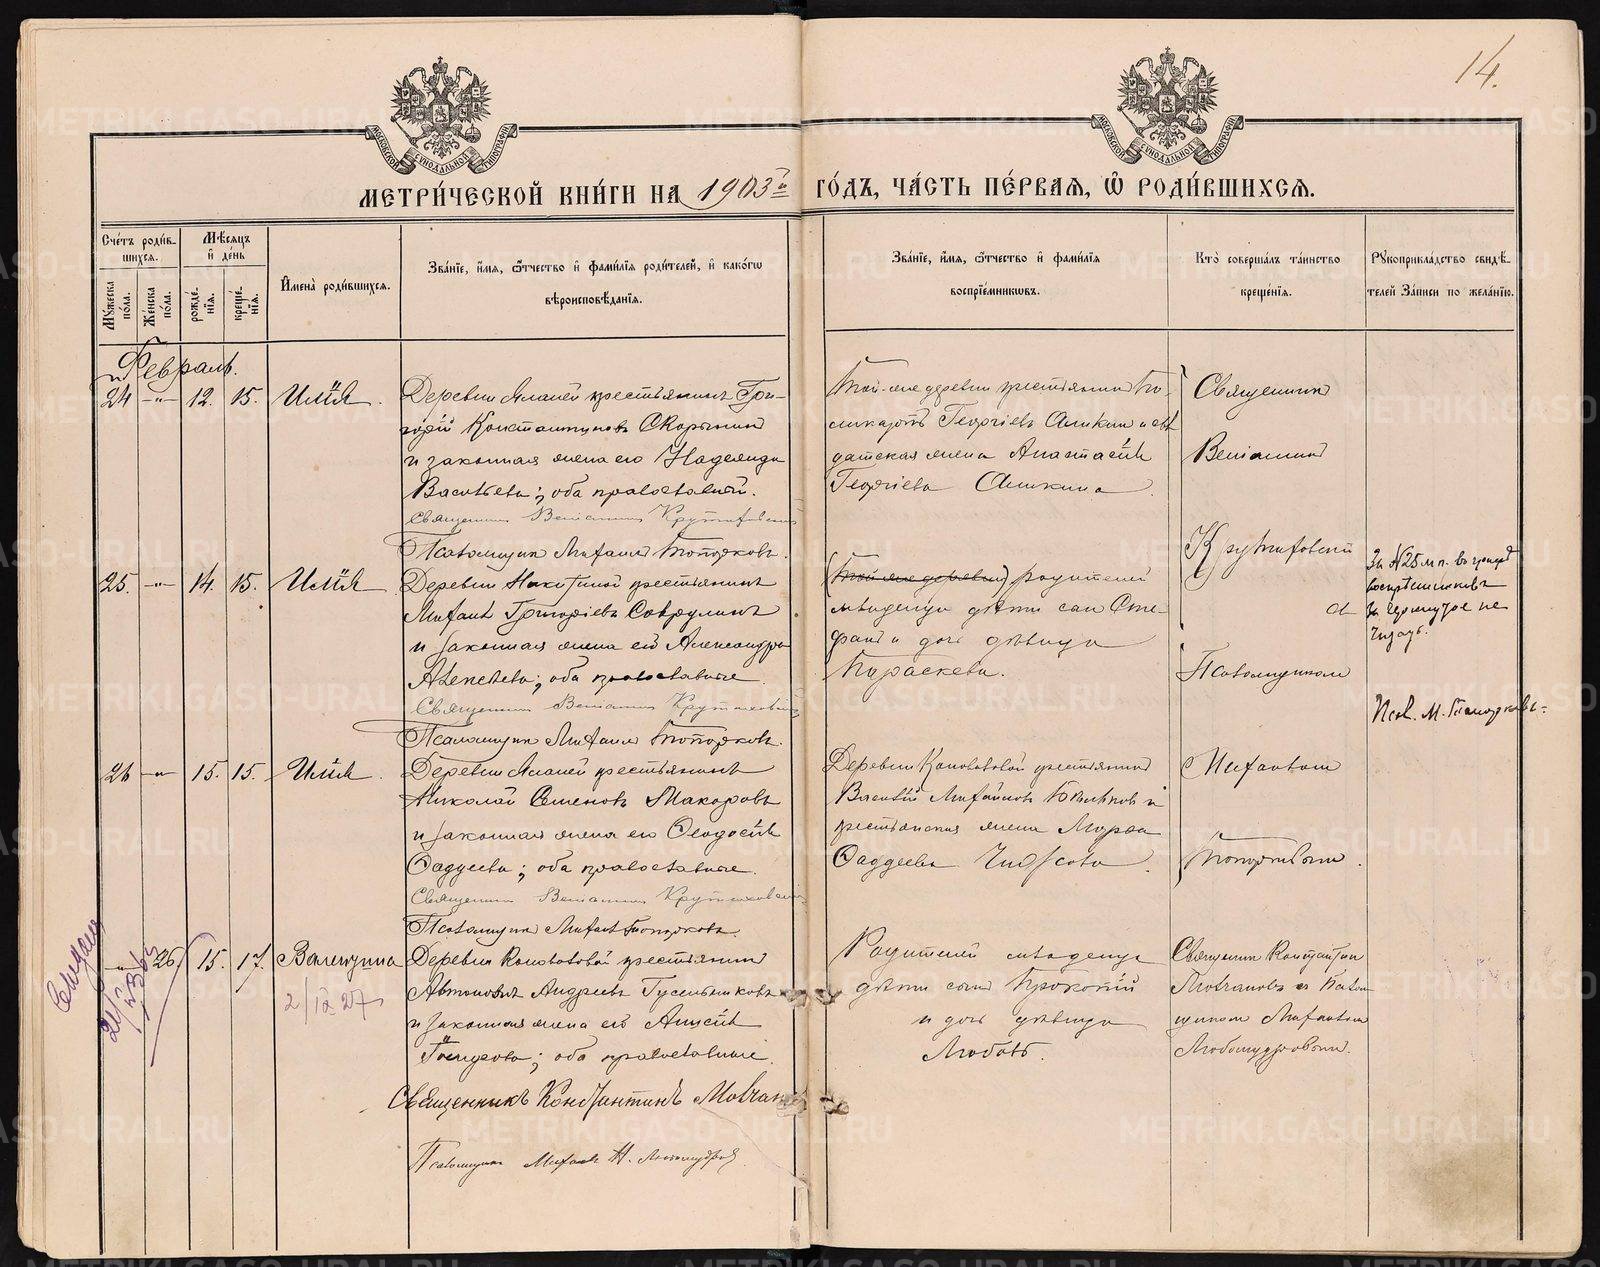 14.
МОСКОВСКОЙ СѴНОДАЛЬНОЙ ТИПОГРАФІИ
МОСКОВСКОЙ СѴНОДАЛЬНОЙ ТИПОГРАФІИ
МЕТРИ́ЧЕСКОЙ КНИ́ГИ НА 1903й ГО́ДЪ, ЧА́СТЬ ПЕ́РВАЯ, Ѡ РОДИ́ВШИХСЯ.
Сче́тъ роди́в-
шихся.
Мꙋ́жеска по́ла.
Же́нска по́ла.
Мѣ́сяцъ и де́нь
рожде́-нїя.
креще́-нїя.
И҆мена̀ роди́вшихся.
Зва́нїе, и҆́мя, ѻ҆́тчество и҆ фами́лїя роди́телей, и҆ како́гѡ
вѣроисповѣ́данїя.
Зва́нїе, и҆́мя, ѻ҆́тчество и҆ фами́лїя
воспрїе́мникѡвъ.
Кто̀ соверша́лъ та́инство
креще́нїя.
Рꙋкоприкла́дство свидѣ́-
телей за́писи по жела́нїю.
Февраль.
24 -"- 12. 15. Илія.
Деревни крестьянинъ Гри-
горій Константиновъ Скорынинъ
и законная жена его Надежда
Васильева; оба православные.
Священникъ Веніаминъ Крутиховскій
Псаломщикъ Михаилъ Топорковъ.
Той-же деревни крестьянинъ
Георгіевъ Аликинъ и сол
датская жена Анастасія
Георгіева Аликина.
Священникъ
Веніаминъ
Крутиховскій
съ
Псаломщикомъ
Михаиломъ
Топорковымъ.
25. -"- 14. 15. Илія
Деревни крестьянинъ
Михаилъ Григоріевъ
и законная жена его Александра
Алексѣева; оба православные.
Священникъ Веніаминъ Крутиховскій
Псаломщикъ Михаилъ Топорковъ.
(Той-же деревни) родителей
младенца дѣти сынъ Сте-
фанъ и дочь дѣвица
Параскева.
За №25 м п. въ графѣ
воспріемниковъ
зачеркнутое не
читать.
Псал. М. Топорковъ.
26 -"- 15. 15. Илія.
Деревни крестьянинъ
Николай Семеновъ Макаровъ
и законная жена его Ѳеодосія
Ѳаддеева; оба православные.
Священникъ Веніаминъ Крутиховскій
Псаломщикъ Михаилъ Топорковъ.
Деревни Коноваловой крестьянинъ
Василій Михайловъ и
крестьянская жена Марѳа
Ѳаддеева
-"- 26. 15. 17. Валентина
2/IX 27
Деревни Коноваловой крестьянинъ
Андреевъ Гусельниковъ
и законная жена его Анисія
оба православные.
Священникъ Константинъ Молчан
Псаломщикъ Михаилъ Н. Любомудровъ
Родителей младенца
дѣти сынъ Прокопій
и дочь дѣвица
Любовь.
Священникъ Константинъ
Молчановъ съ Псалом
щикомъ Михаиломъ
Любомудровымъ.
METRIKI.GASO-URAL.RU